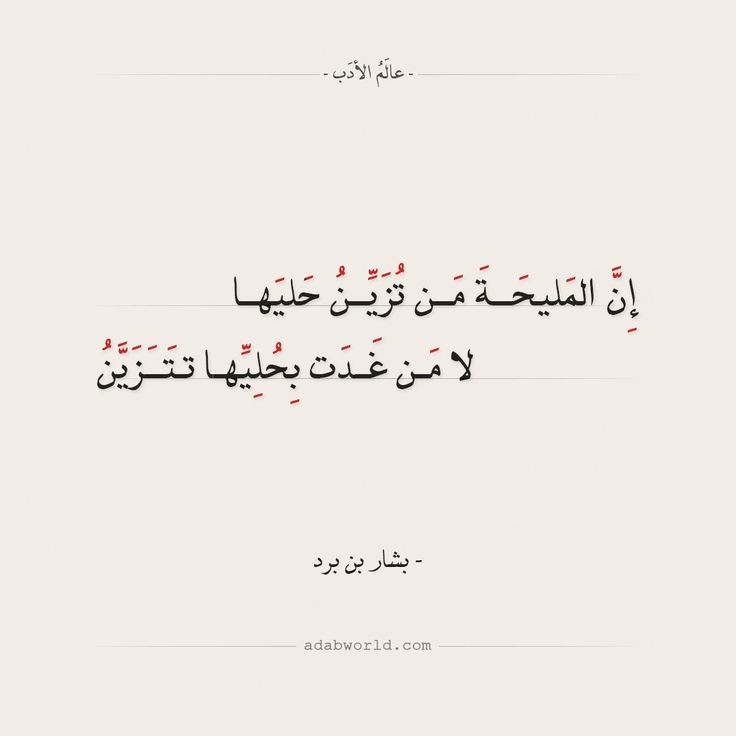 - عالَمُ الأدَب -
إِنَّ المَليحَـةَ مَـن تُزَيِّـنُ حَليَهـا
لا مَـن غَـدَت بِحُلِيِّهـا تـتَـزَيَّنُ
- بشار بن برد
adabworld.com